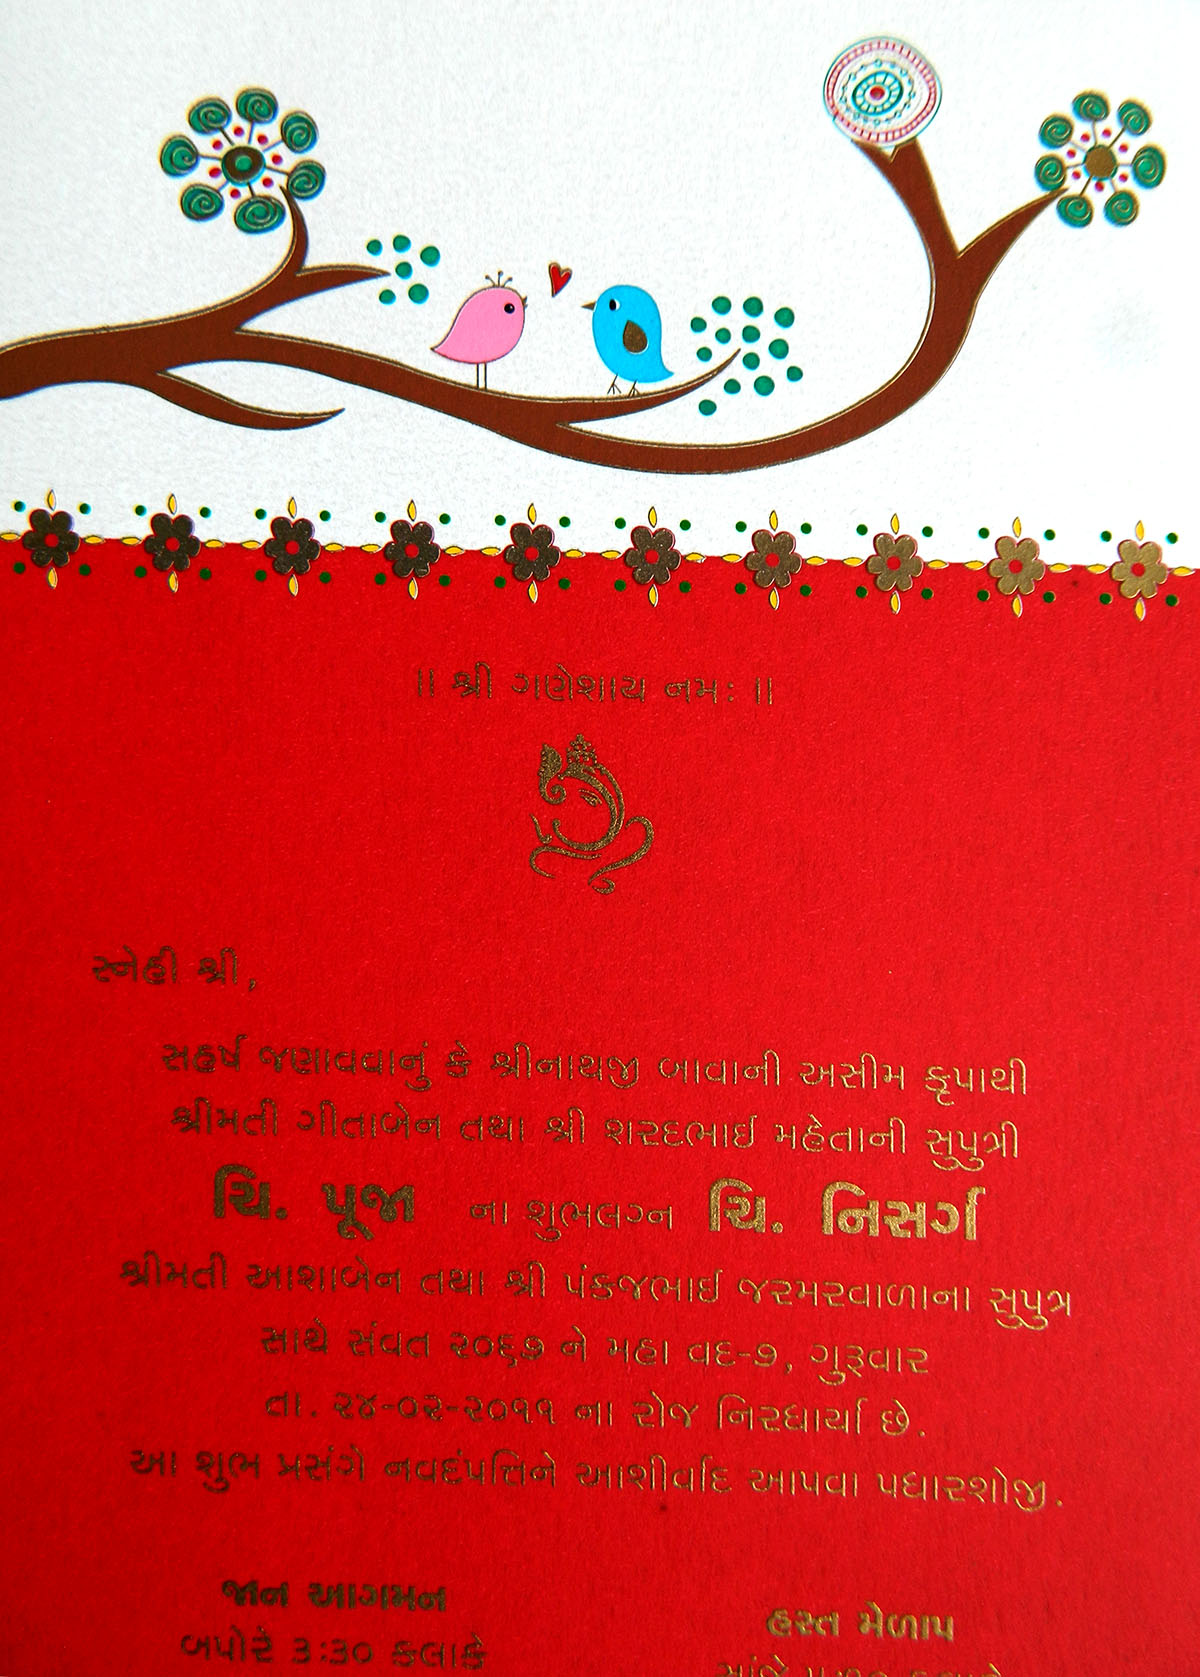 ॥ શ્રી ગણેશાય નમઃ ॥
સ્નેહી શ્રી,
સહર્ષ જણાવવાનું કે શ્રીનાથજી બાવાની અસીમ કૃપાથી
શ્રીમતી ગીતાબેન તથા શ્રી શરદભાઈ મહેતાની સુપુત્રી
ચિ. પૂજા ના શુભલગ્ન ચિ. નિસર્ગ
શ્રીમતી આશાબેન તથા શ્રી પંકજભાઈ જરમરવાળાના સુપુત્ર
સાથે સંવત ૨૦૬૭ ને મહા વદ-૭, ગુરૂવાર
તા. ૨૪-૦૨-૨૦૧૧ ના રોજ નિરધાર્યા છે.
આ શુભ પ્રસંગે નવદંપત્તિને આશીર્વાદ આપવા પધારશોજી.
જાન આગમન
બપોરે ૩:૩૦ કલાકે
હસ્ત મેળાપ
સાંજે